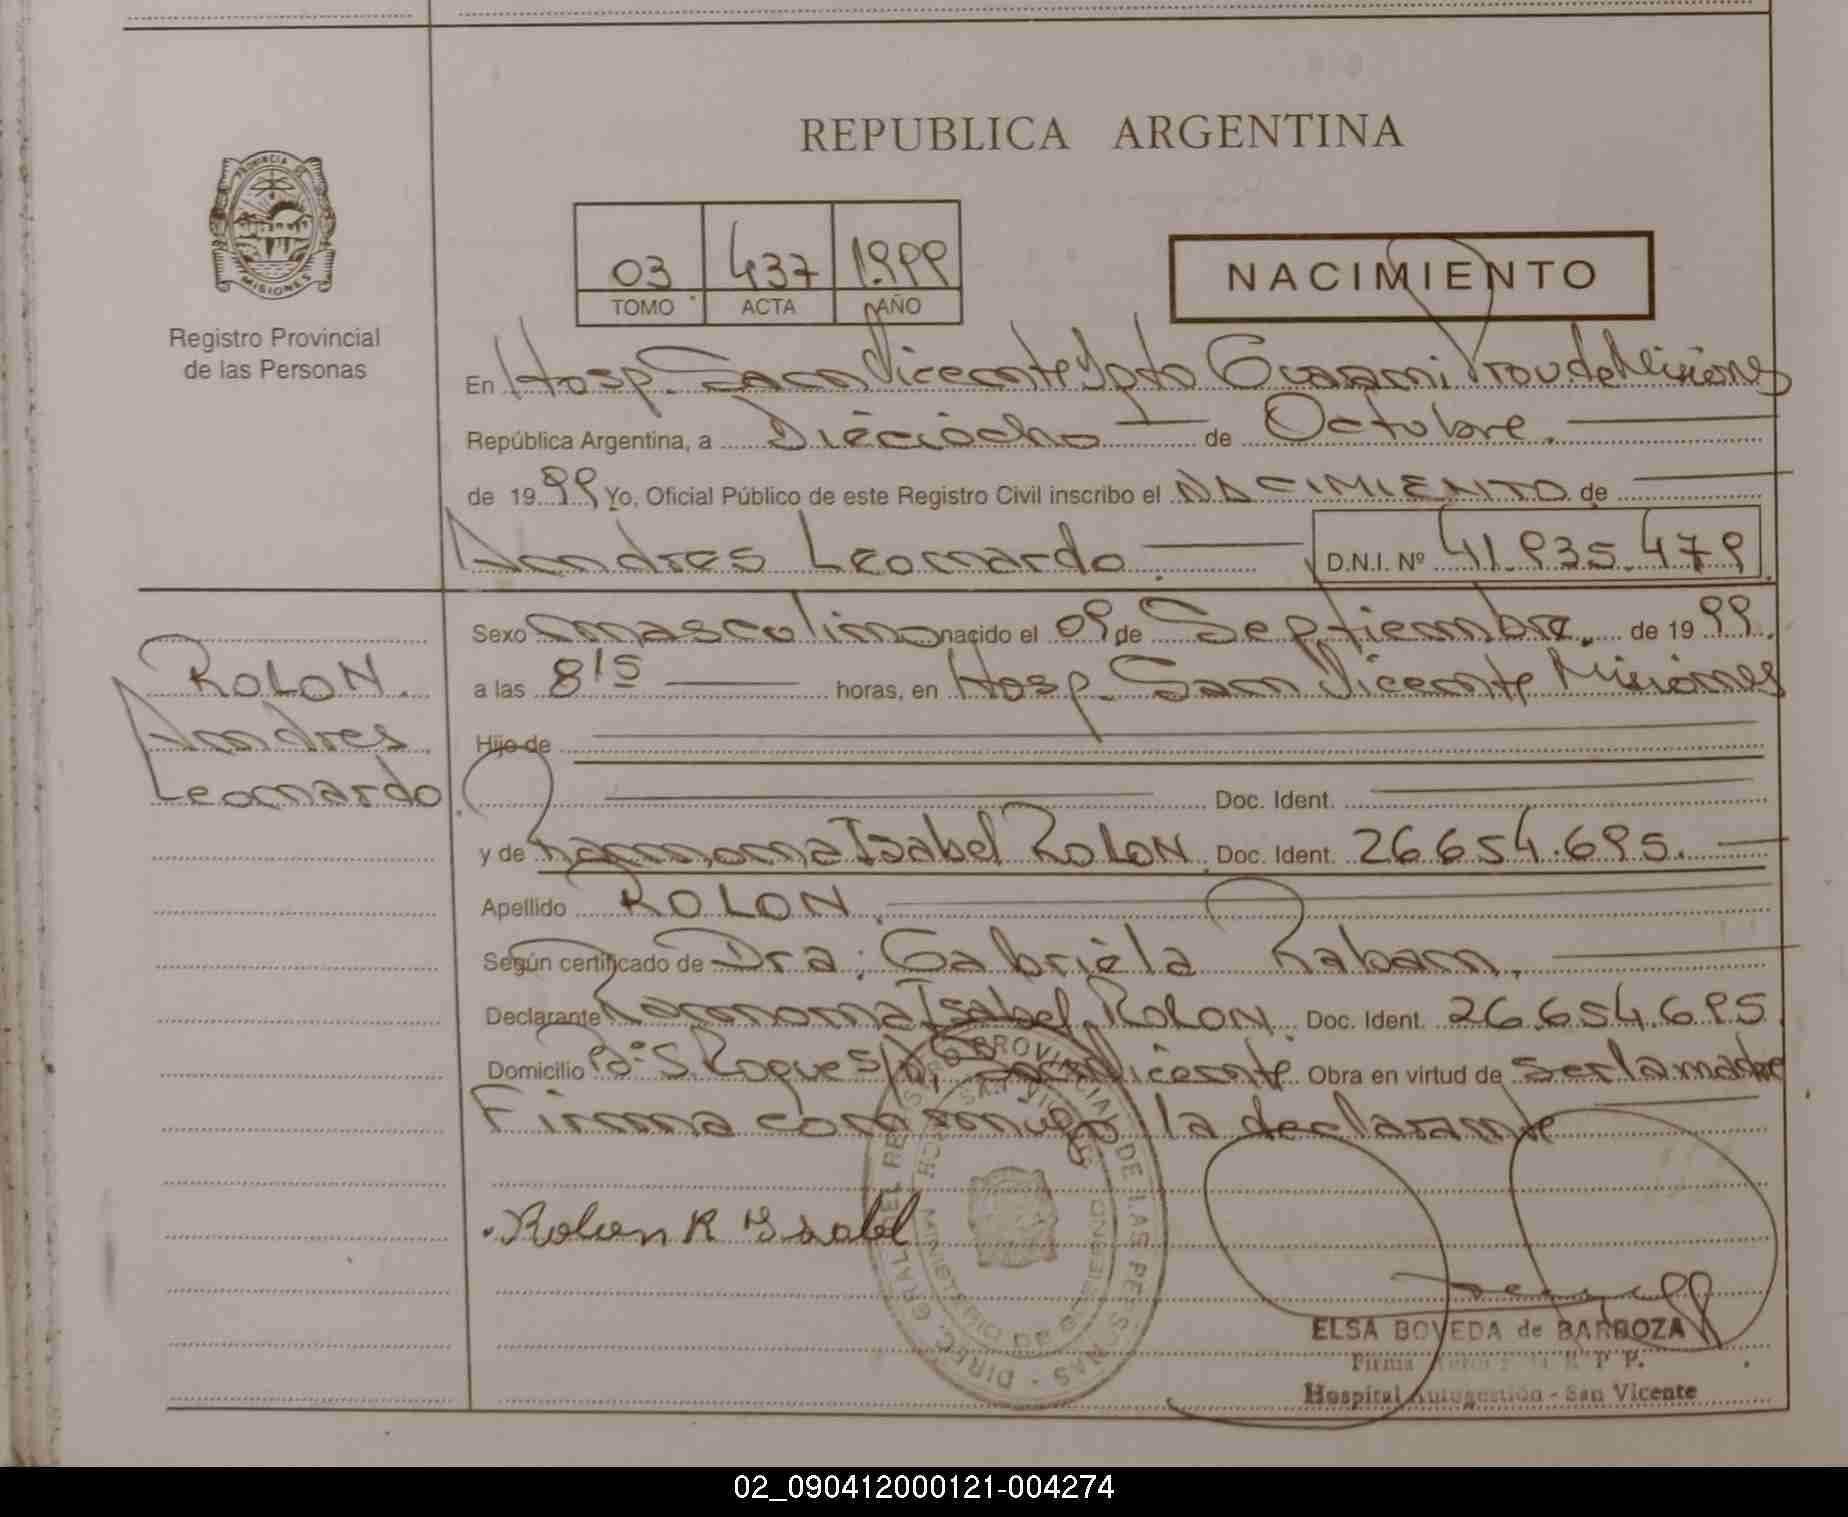 REPUBLICA ARGENTINA
PROVINCIA DE
MISIONES
Registro Provincial
de las Personas
03 437 1.999
TOMO ACTA AÑO
NACIMIENTO
En Hosp. San Vicente Dpto Guarani Prov. de Misiones
República Argentina, a Dieciocho de Octubre.
de 19 99 Yo, Oficial Público de este Registro Civil inscribo el NACIMIENTO de
Andres Leonardo. D.N.I. Nº 41.935.479.
Sexo masculino nacido el 09 de Septiembre. de 19 99.
a las 8 15 horas, en Hosp. San Vicente Misiones
Hijo de
Doc. Ident.
y de Ramona Isabel ROLON. Doc. Ident. 26.654.695.
Apellido ROLON.
Según certificado de Dra: Gabriela Raban.
Declarante Ramona Isabel ROLON. Doc. Ident. 26.654.695
Domicilio Bº S. Roque s/n, San Vicente. Obra en virtud de ser la madre
Firma conmigo la declarante
ROLON.
Andres
Leonardo.
Rolon R Isabel
DIREC. GRAL. DEL REGISTRO PROVINCIAL DE LAS PERSONAS
SAN VICENTE
ELSA BOVEDA de BARBOZA
Firma R. P. P.
Hospital Autogestión - San Vicente
02_090412000121-004274